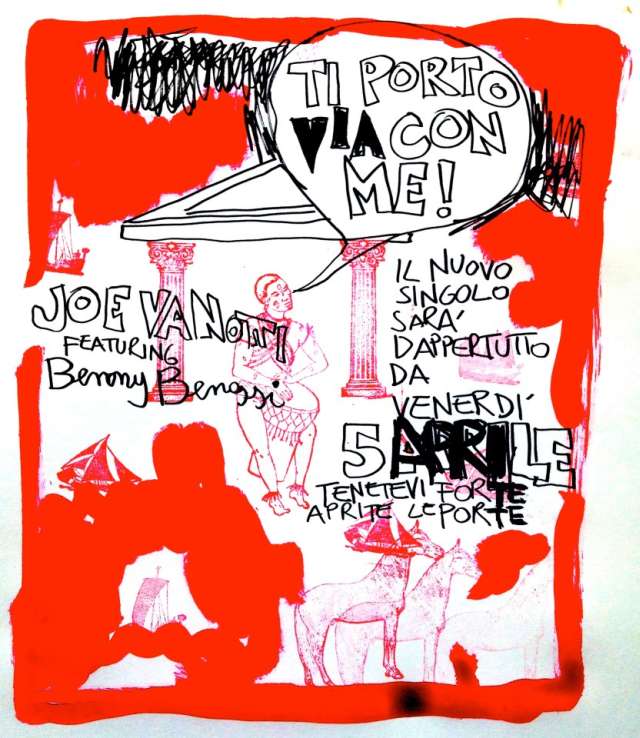 TI PORTO
VIA CON
ME!
JOE VANOTTI
FEATURING
Benny Benassi
IL NUOVO
SINGOLO
SARA'
DAPPERTUTTO
DA
VENERDI'
5 APRILE
TENETEVI FORTE
APRITE LE PORTE